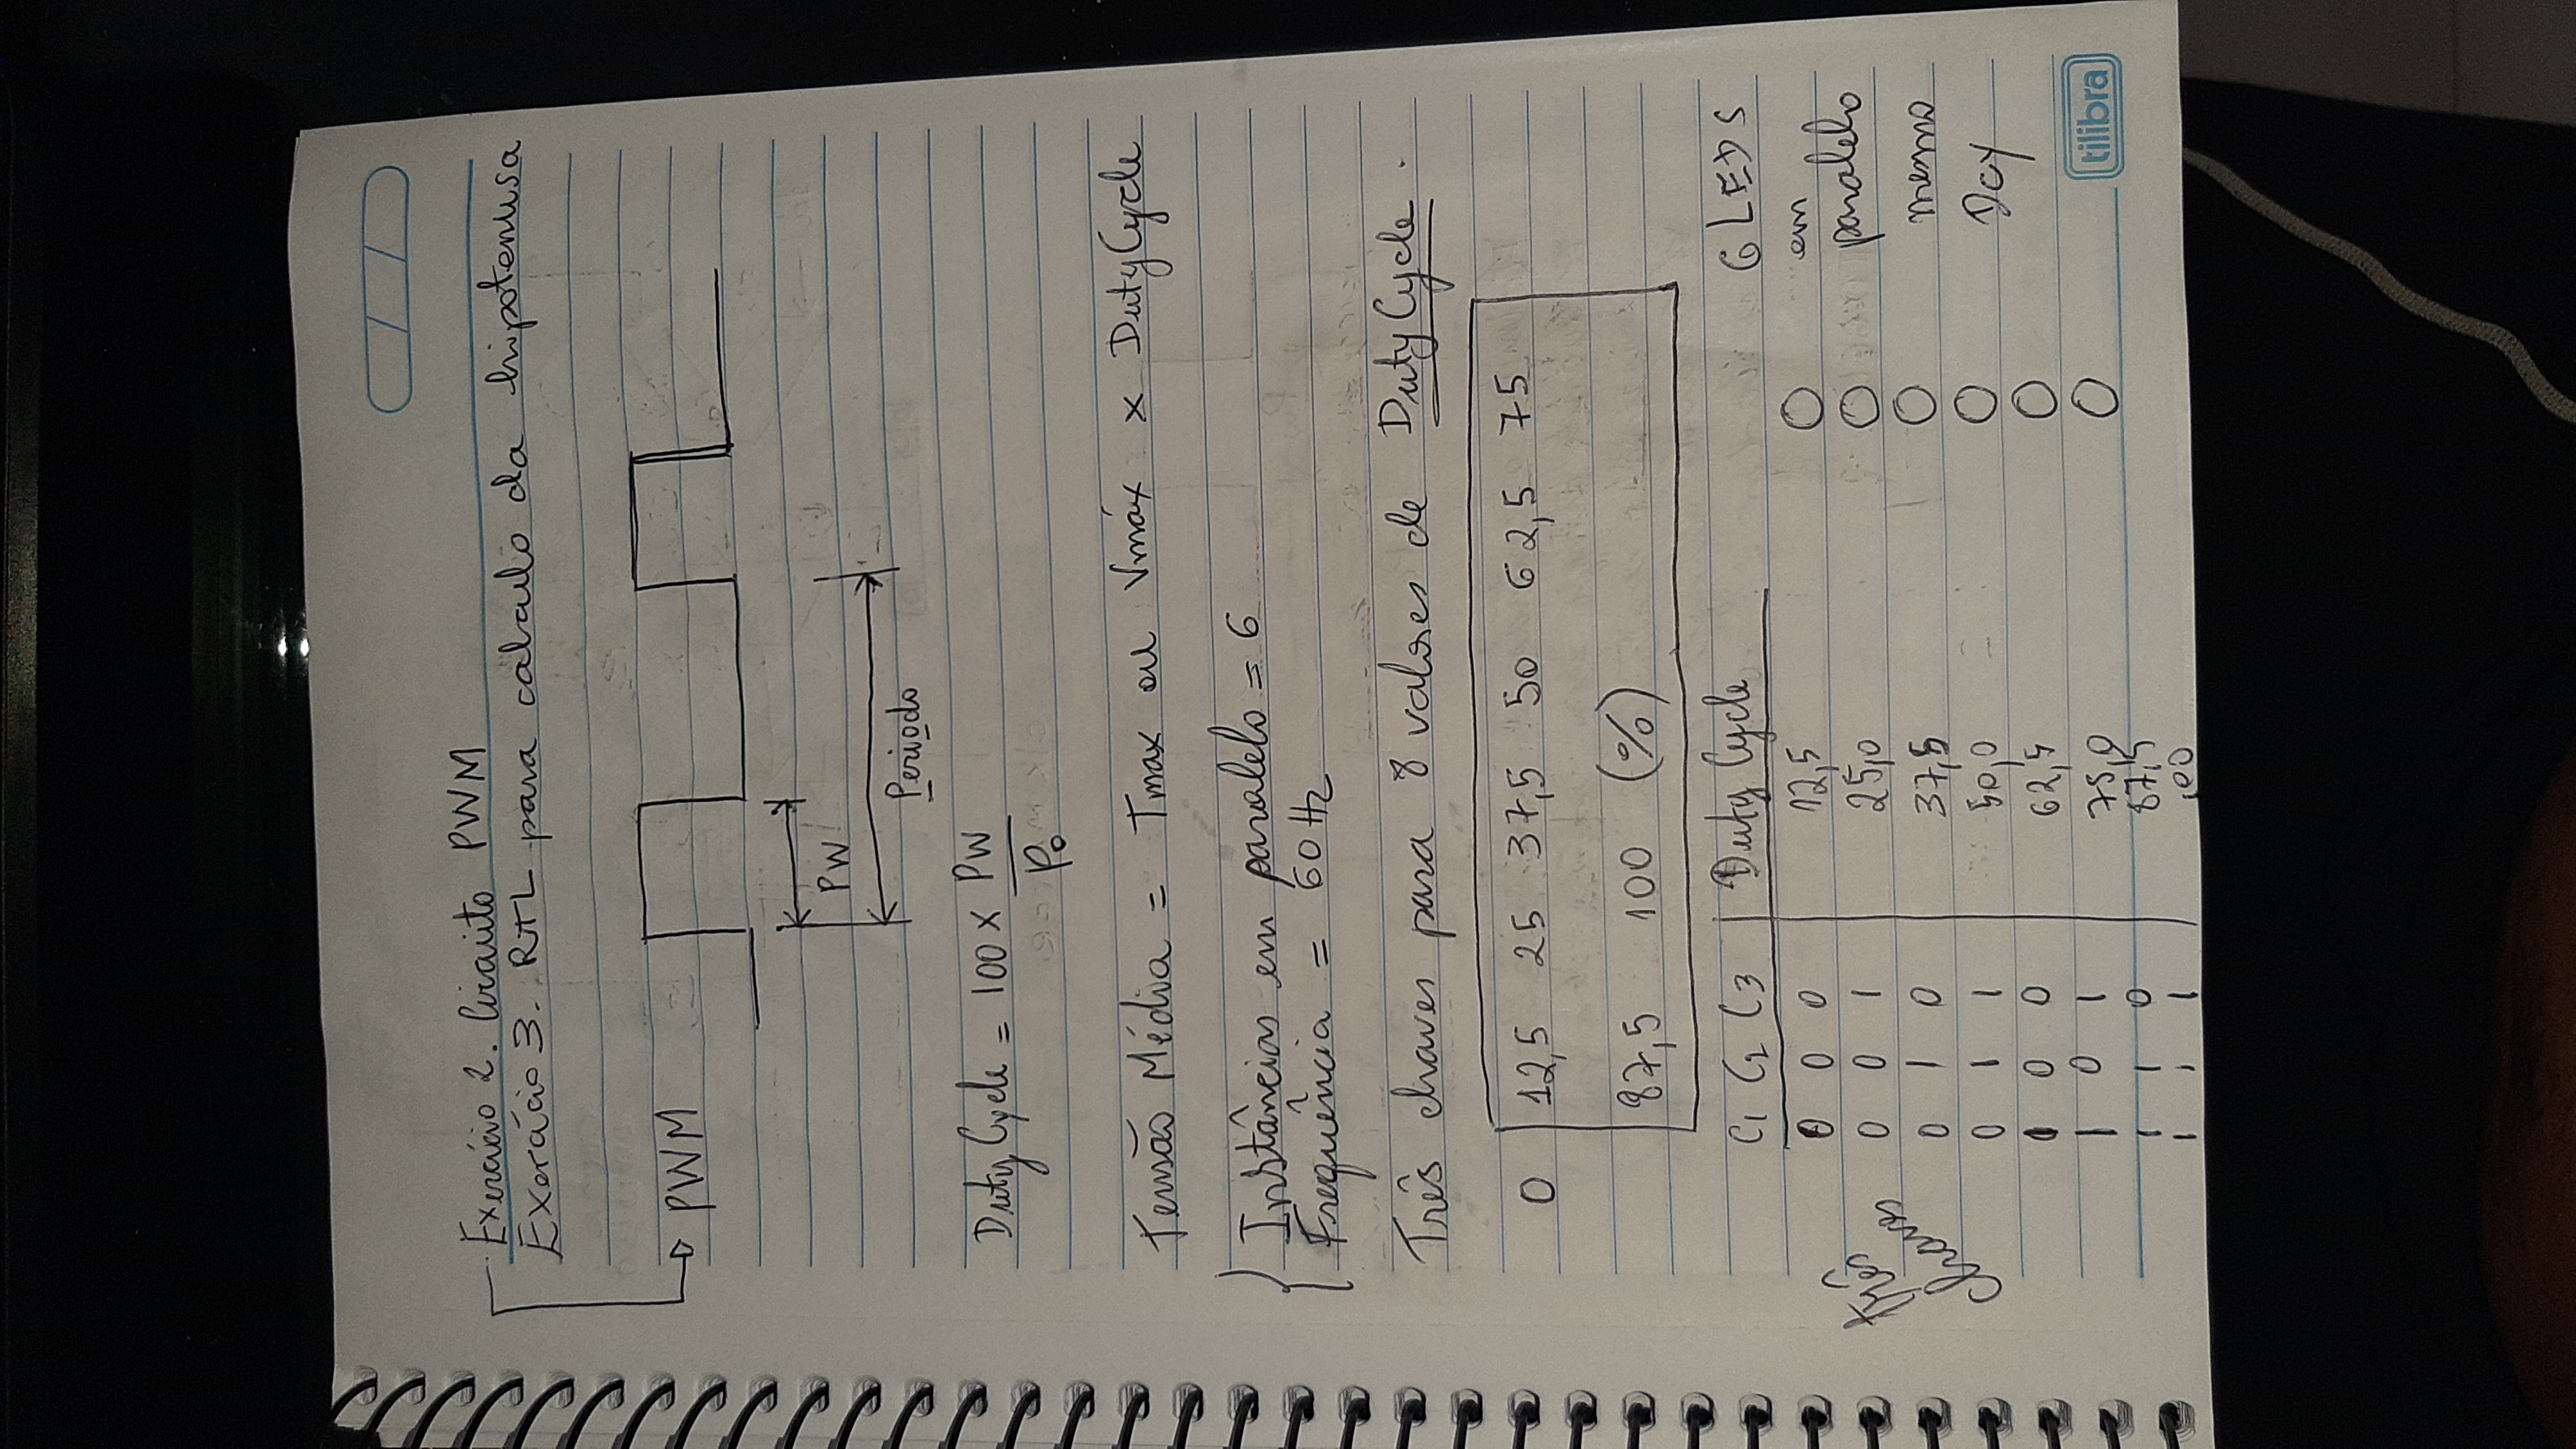 Exercício 2. Circuito PWM
Exercício 3. RTL para calculo da hipotenusa
PWM
PW
Periodo
Duty Cycle = 100 x PW
Po
Tensão Média = Tmax ou Vmáx x Duty Cycle
Instâncias em paralelo = 6
Frequência = 60 Hz
Três chaves para 8 valores de Duty Cycle.
0 12,5 25 37,5 50 62,5 75
87,5 100 (%)
C1 C2 C3 Duty Cycle 6 LEDS
0 0 0 12,5 em
0 0 1 25,0 paralelo
0 1 0 37,5 mesmo
0 1 1 50,0 DCY
1 0 0 62,5
1 0 1 75,0
1 1 0 87,5
1 1 1 100
três
chaves
tilibra